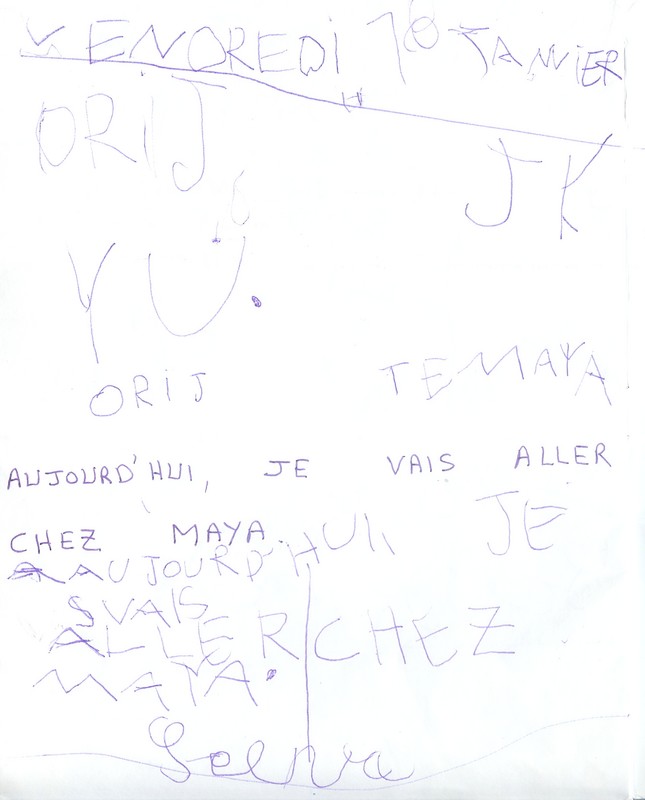 VENDREDI 18 JANVIER
ORIJ
JK
YU.
ORIJ TEMAYA
AUJOURD'HUI, JE VAIS ALLER
CHEZ MAYA.
AUJOURD'HUI JE
VAIS
ALLER CHEZ
MAYA.